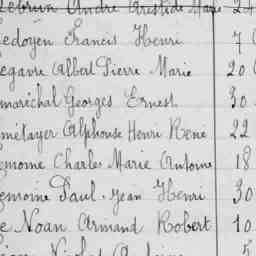 Lebrun André Aristide Marie 24
Ledoyen Francis Henri 7
Legavre Albert Pierre Marie 20
maréchal Georges Ernest 30
métayer Alphouse Henri René 22
emoine Charles Marie Antoine 18
emoine Paul Jean Henri 30
e Noan Armand Robert 10
Nicolas 5